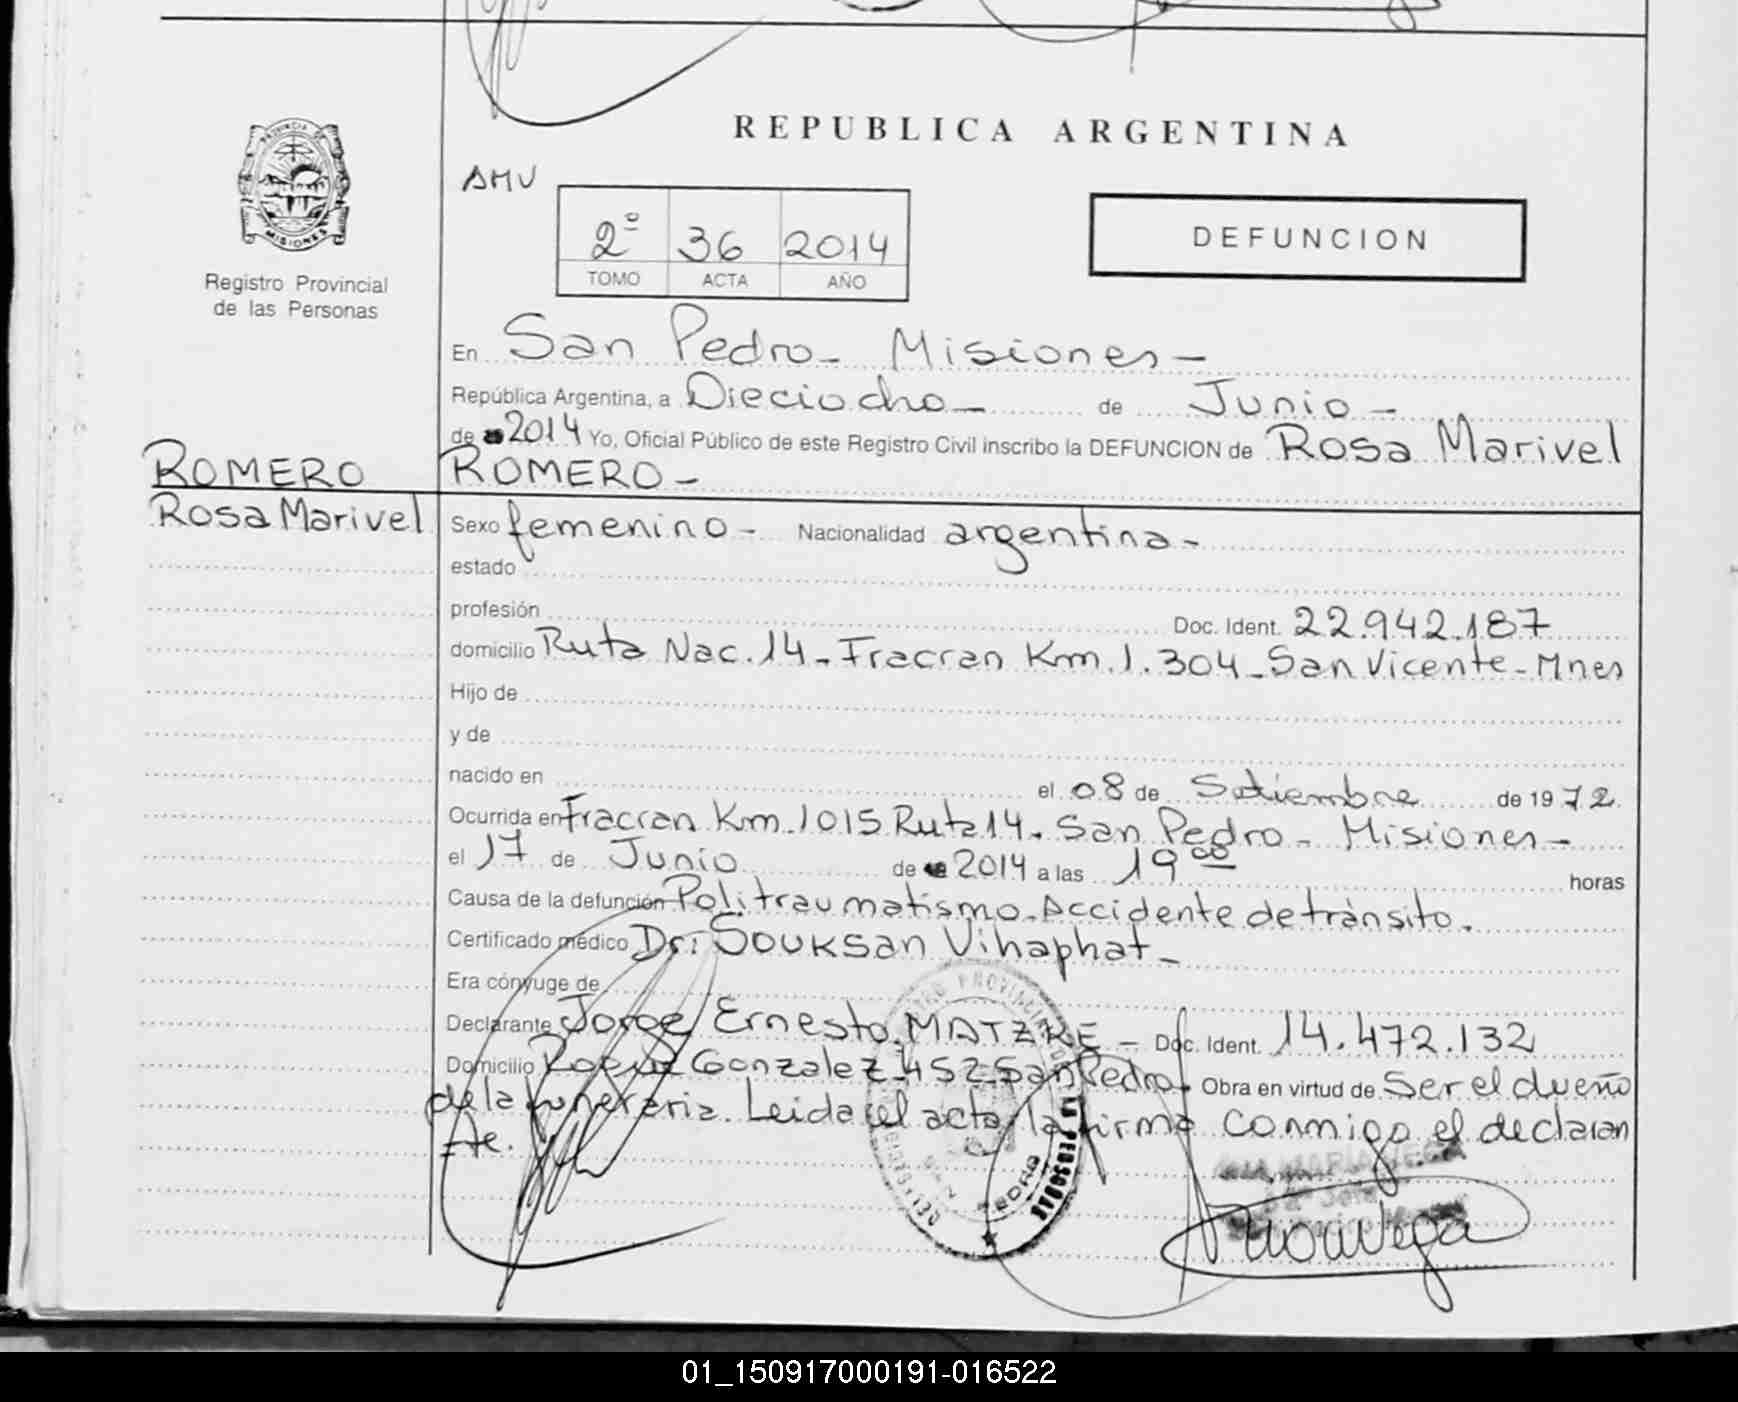 REPUBLICA ARGENTINA
PROVINCIA DE
MISIONES
Registro Provincial
de las Personas
AMV
2º 36 2014
TOMO ACTA AÑO
DEFUNCION
En San Pedro - Misiones -
República Argentina, a Dieciocho - de Junio -
de 2014 Yo, Oficial Público de este Registro Civil inscribo la DEFUNCION de Rosa Marivel
ROMERO ROMERO -
Rosa Marivel Sexo femenino - Nacionalidad argentina -
estado
profesión Doc. Ident. 22.942.187
domicilio Ruta Nac. 14 - Fracran Km. 1.304 - San Vicente - Mnes
Hijo de
y de
nacido en el 08 de Setiembre de 1972
Ocurrida en Fracran Km. 1015 Ruta 14. San Pedro - Misiones -
el 17 de Junio de 2014 a las 19 00 horas
Causa de la defunción Politraumatismo. Accidente de tránsito.
Certificado médico Dr: Souksan Vihaphat -
Era cónyuge de
Declarante Jorge Ernesto MATZKE - Doc. Ident. 14.472.132
Domicilio Roque Gonzalez 452 San Pedro. Obra en virtud de Ser el dueño
de la funeraria. Leida el acta, la firma conmigo el declaran
te.
01_150917000191-016522